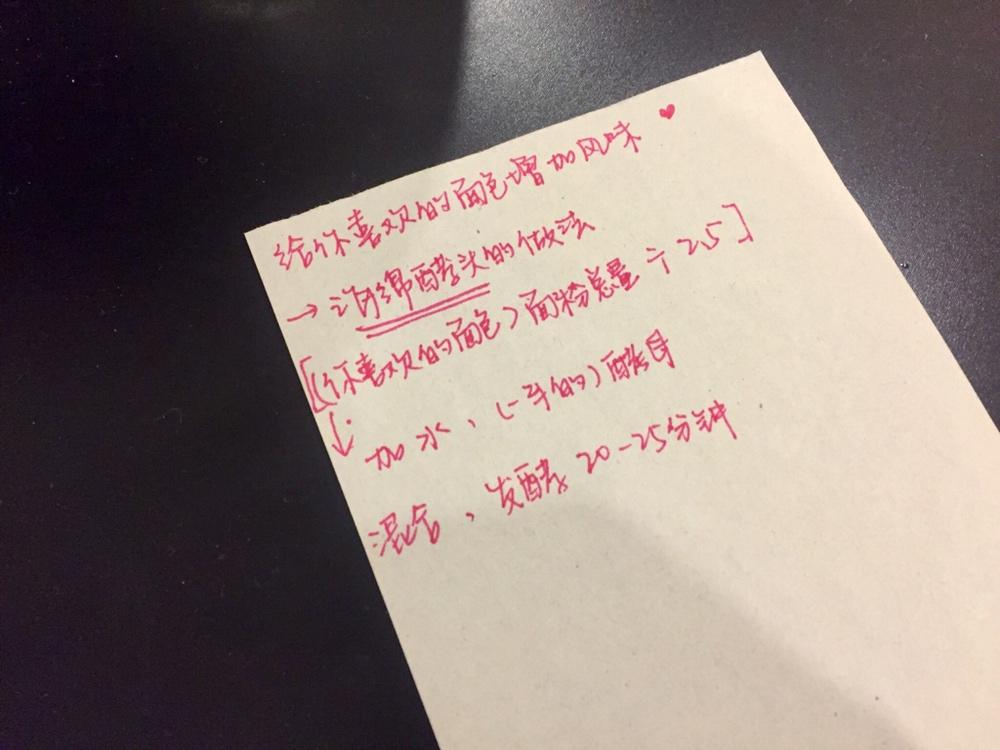 给你喜欢的面包增加风味 ♥
→ 海绵酵头的做法
[(你喜欢的面包)面粉总量 ÷ 2.5]
↓ 加水、(一半的)酵母
混合、发酵 20-25分钟